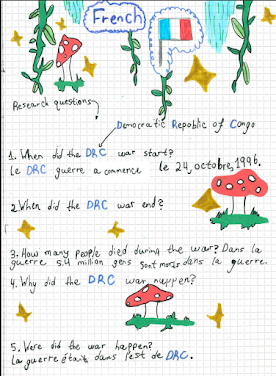 French
Research questions
Democratic Republic of Congo
1. When did the DRC war start?
le DRC guerre a commence le 24, octobre, 1996.
2. When did the DRC war end?
3. How many people died during the war? Dans la
guerre 5.4 million gens sont morts dans la guerre.
4. Why did the DRC war happen?
5. Were did the war happen?
La guerre était dans l'est de DRC.